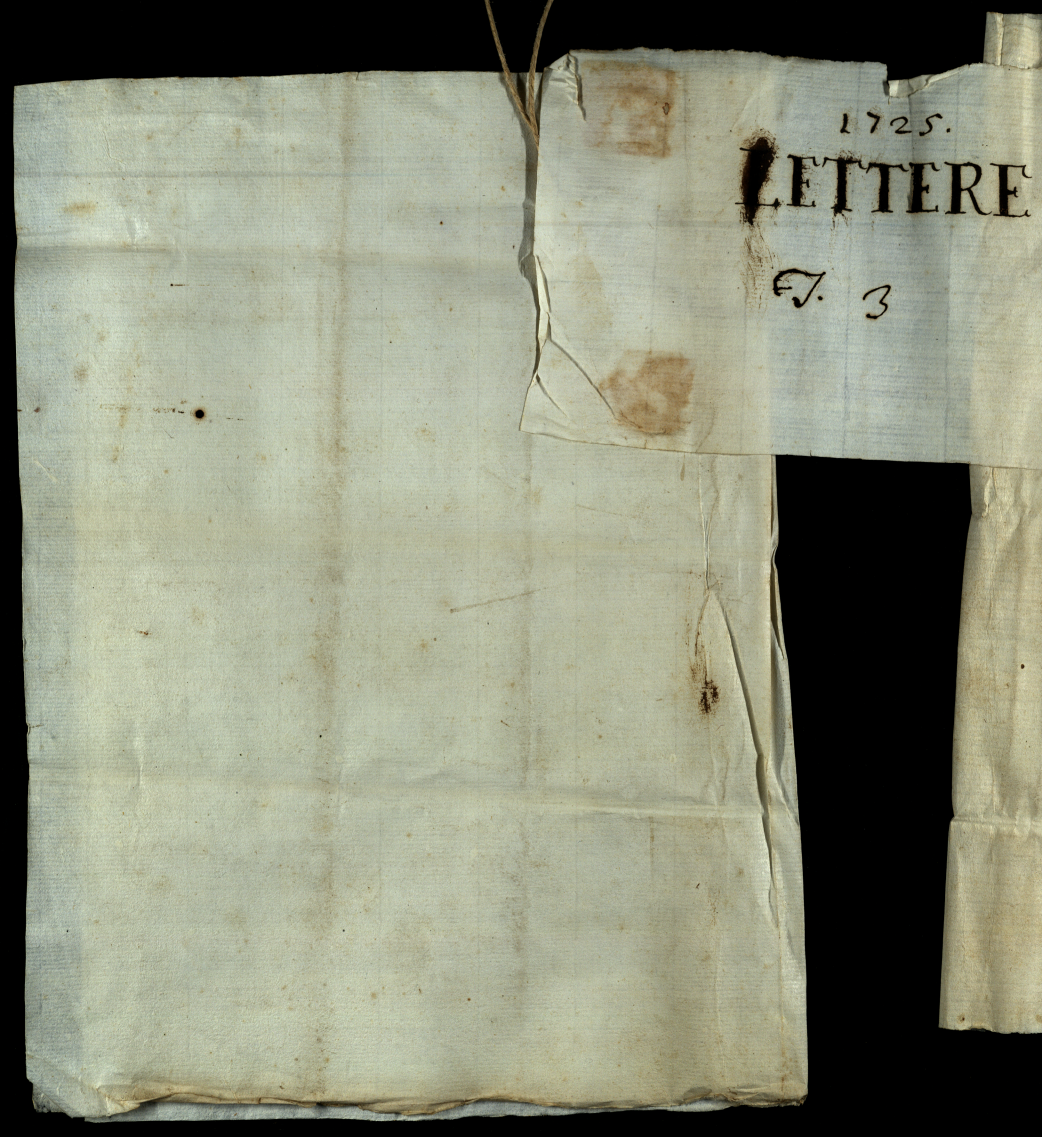 1725.
LETTERE
EJ. 3